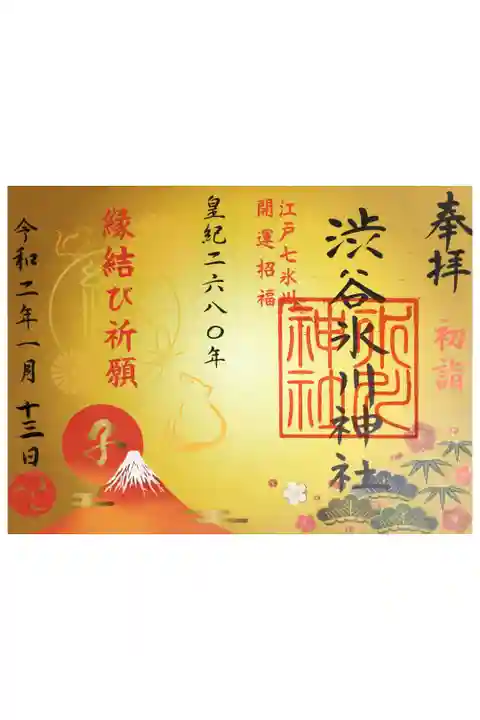 奉拝
初詣
渋谷氷川神社
氷川
神社
江戸七氷川
開運招福
皇紀二六八〇年
縁結び祈願
子
令和二年一月十三日